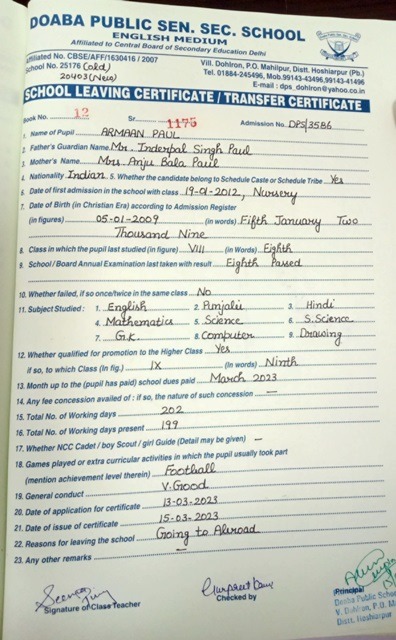 DOABA PUBLIC SEN. SEC. SCHOOL
ENGLISH MEDIUM
Affiliated to Central Board of Secondary Education Delhi
Affiliated No. CBSE/AFF/1630416 / 2007
School No. 25176 (old)
20403 (New)
Vill. Dohlron, P.O. Mahilpur, Distt. Hoshiarpur (Pb.)
Tel. 01884-245496, Mob.99143-43496,99146-41496
E-mail : dps_dohlron@yahoo.co.in
SCHOOL LEAVING CERTIFICATE / TRANSFER CERTIFICATE
Book No. 12 Sr. 1175 Admission No. DPS/3586
1. Name of Pupil ARMAAN PAUL
2. Father's Guardian Name. Mr. Inderpal Singh Paul
3. Mother's Name Mrs. Anju Bala Paul
4. Nationality Indian 5. Whether the candidate belong to Schedule Caste or Schedule Tribe Yes
6. Date of first admission in the school with class 19-01-2012, Nursery
7. Date of Birth (in Christian Era) according to Admission Register
(in figures) 05-01-2009 (in words) Fifth January Two
Thousand Nine
8. Class in which the pupil last studied (in figure) VIII (in Words) Eighth
9. School / Board Annual Examination last taken with result Eighth Passed
10. Whether failed, if so once/twice in the same class No
11. Subject Studied : 1. English 2. Punjabi 3. Hindi
4. Mathematics 5. Science 6. S.Science
7. G.K. 8. Computer 9. Drawing
12. Whether qualified for promotion to the Higher Class Yes
if so, to which Class (In fig.) IX (In words) Ninth
13. Month up to the (pupil has paid) school dues paid March 2023
14. Any fee concession availed of : if so, the nature of such concession —
15. Total No. of Working days 202
16. Total No. of Working days present 199
17. Whether NCC Cadet / boy Scout / girl Guide (Detail may be given) —
18. Games played or extra curricular activities in which the pupil usually took part
(mention achievement level therein) Football
19. General conduct V.Good
20. Date of application for certificate 13-03-2023
21. Date of issue of certificate 15-03-2023
22. Reasons for leaving the school Going to Abroad
23. Any other remarks —
Signature of Class Teacher
Gurpreet Kaur
Checked by
Principal
Doaba Public Scho
V. Dohlron, P.O. M
Distt. Hoshiarpur